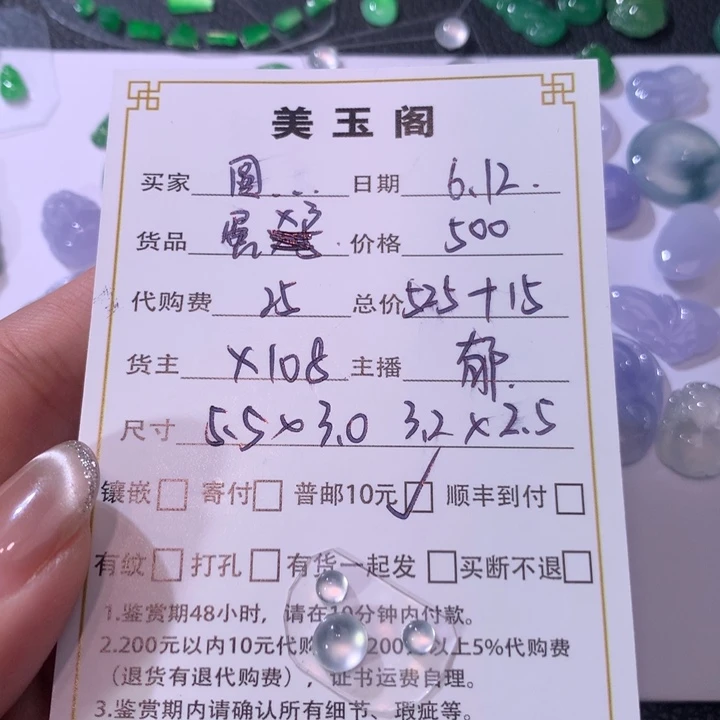 美玉阁
买家 圆... 日期 6.12.
货品 蛋 x3 价格 500
代购费 25 总价 525+15
货主 x108 主播 郁.
尺寸 5.5x3.0 3.2x2.5
镶嵌□ 寄付□ 普邮10元☑ 顺丰到付□
有纹□ 打孔□ 有货一起发□ 买断不退□
1.鉴赏期48小时，请在10分钟内付款。
2.200元以内10元代购 200 以上5%代购费
（退货有退代购费），证书运费自理。
3.鉴赏期内请确认所有细节、瑕疵等。